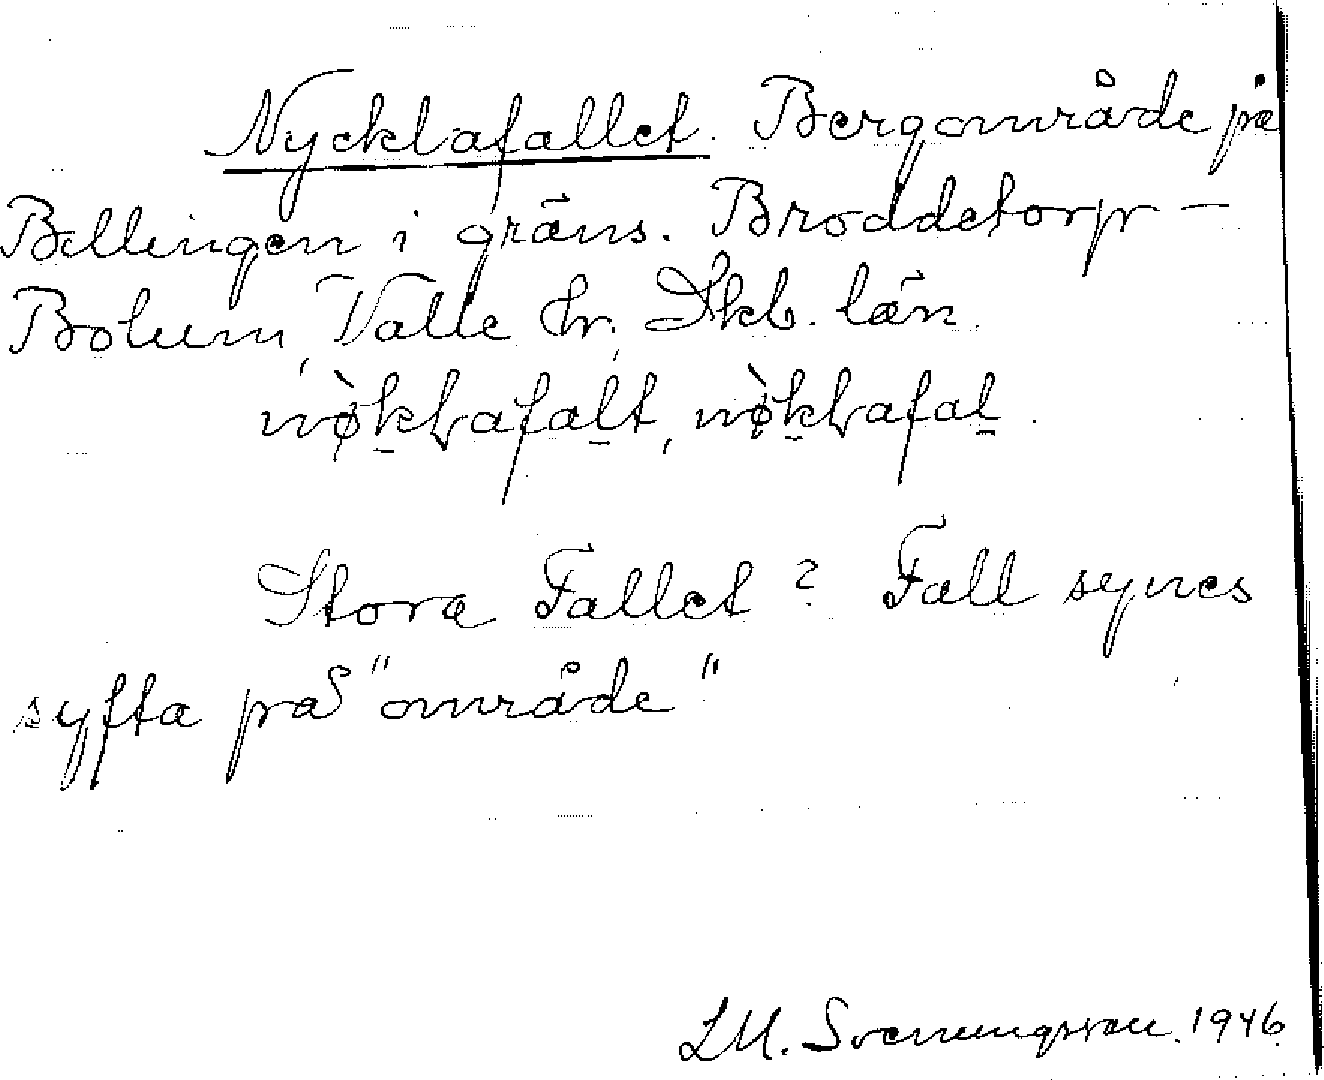 Nycklafallet. Bergområde på
Billingen i gräns. Broddetorp –
Bolum, Valle hr, Skb. län.
nø̀klafalt, nø̀klafal.
Stora Fallet? Fall synes
syfta på "område"
LM. Svenungsson. 1946.